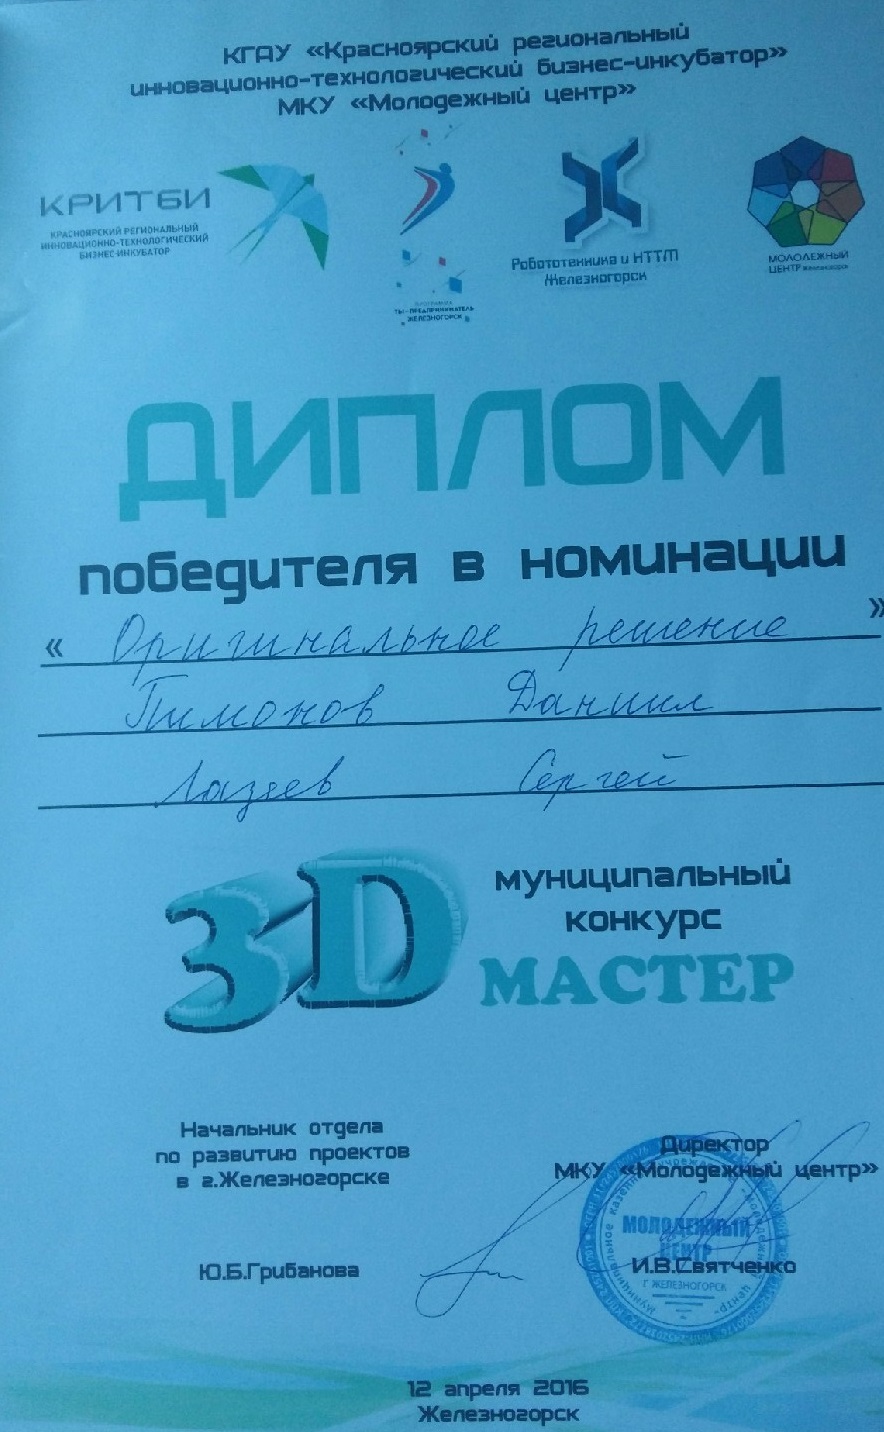 КГАУ «Красноярский региональный
инновационно-технологический бизнес-инкубатор»
МКУ «Молодежный центр»
КРИТБИ
КРАСНОЯРСКИЙ РЕГИОНАЛЬНЫЙ
ИННОВАЦИОННО-ТЕХНОЛОГИЧЕСКИЙ
БИЗНЕС-ИНКУБАТОР
ПРОГРАММА
ТЫ-ПРЕДПРИНИМАТЕЛЬ
ЖЕЛЕЗНОГОРСК
Робототехника и НТТМ
Железногорск
МОЛОДЕЖНЫЙ
ЦЕНТР Железногорск
ДИПЛОМ
победителя в номинации
« Оригинальное решение »
Пимонов Даниил
Лазяев Сергей
3D
муниципальный
конкурс
МАСТЕР
Начальник отдела
по развитию проектов
в г.Железногорске
Ю.Б.Грибанова
Директор
МКУ «Молодежный центр»
МОЛОДЕЖНЫЙ
ЦЕНТР
Г ЖЕЛЕЗНОГОРСК
И.В.Святченко
12 апреля 2016
Железногорск